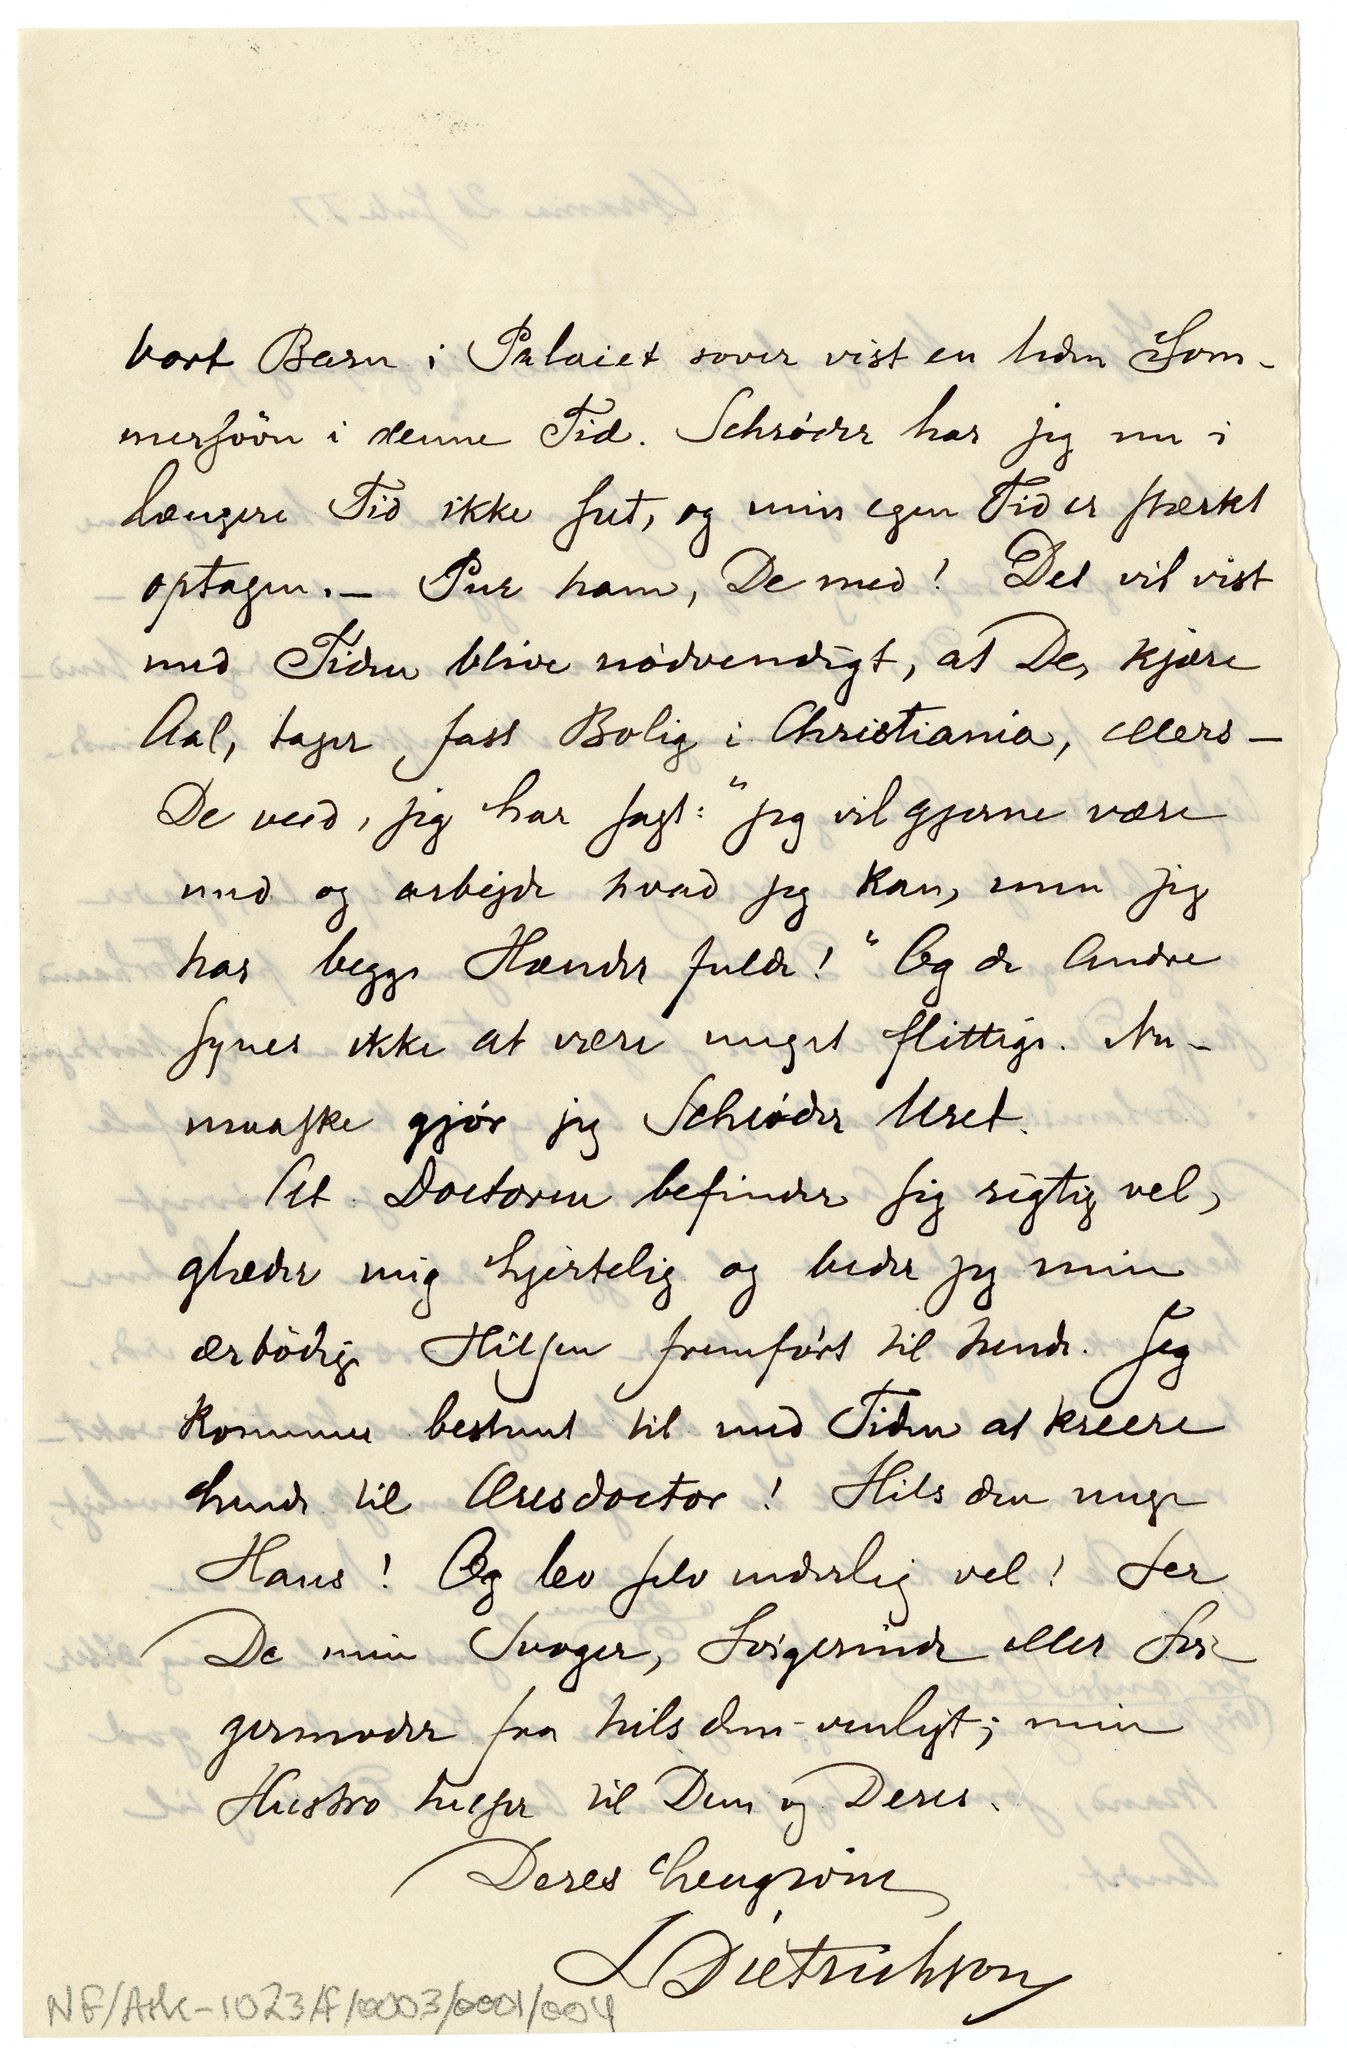 vort Barn i Palaiet sover vist en liden Som-
mersövn i denne Tid. Schrøder har jeg nu i
længere Tid ikke seet, og min egen Tid er stærkt
optagen. — Pur ham, De med! Det vil vist
med Tiden blive nødvendigt, at De, kjære
Aal, tager fast Bolig i Christiania, ellers —
De veed, jeg har sagt: "jeg vil gjerne være
med og arbejde hvad jeg kan, men jeg
har begge Hænder fulde!" Og de Andre
synes ikke at være meget flittige. Nu —
maaske gjør jeg Schrøder Uret.
At Doctoren befinder sig rigtig vel,
glæder mig hjertelig og beder jeg min
ærbødige Hilsen fremført til hende. Jeg
kommer bestemt til med Tiden at kreere
hende til Æresdoctor! Hils den unge
Hans! Og lev selv inderlig vel! Ser
De min Svoger, Svigerinde eller Svi
germoder saa hils dem venligt; min
Hustro hilser til Dem og Deres.
Deres hengivne
L Dietrichson
NF/Ark-1023/F/0003/0001/004